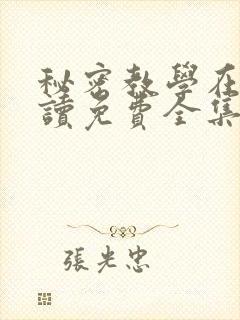 秘密教學在
讀免費全集
張光忠